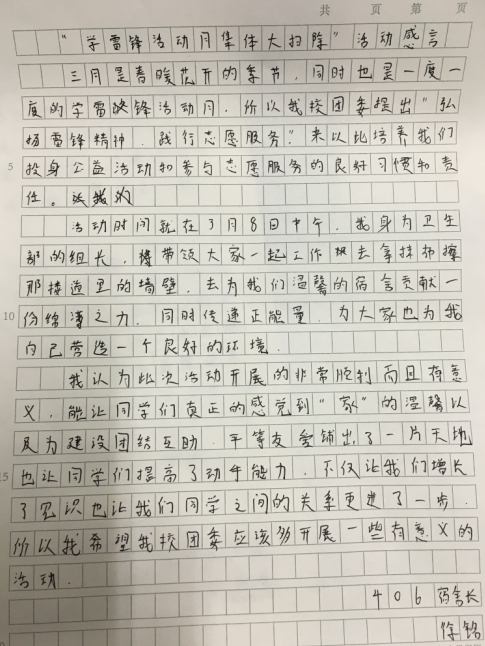 共 页 第 页
“学雷锋活动月集体大扫除”活动感言
三月是春暖花开的季节，同时也是一度一
度的学雷锋活动月．所以我校团委提出“弘
扬雷锋精神．践行志愿服务”来以此培养我们
5 投身公益活动和参与志愿服务的良好习惯和责
任。
活动时间就在3月8日中午．我身为卫生
部的组长，将带领大家一起工作 去拿抹布擦
那楼道里的墙壁．去为我们温馨的宿舍贡献一
10 份绵薄之力．同时传递正能量．为大家也为我
自己营造一个良好的环境．
我认为此次活动开展的非常顺利而且有意
义．能让同学们真正的感觉到“家”的温馨以
及为建设团结互助．平等友爱铺出了一片天地
15 也让同学们提高了动手能力．不仅让我们增长
了见识也让我们同学之间的关系更进了一步．
所以我希望我校团委应该多开展一些有意义的
活动．
406 宿舍长
徐铭